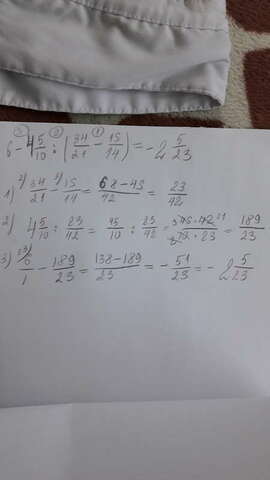 ③ ② ①
6 - 4 5/10 : (34/21 - 15/14) = -2 5/23
1) 2) 34/21 - 3) 15/14 = 68-45/42 = 23/42
2) 4 5/10 : 23/42 = 45/10 : 23/42 = 45·42 21/10·23 = 189/23
3) 23) 6/1 - 189/23 = 138-189/23 = - 51/23 = - 2 5/23